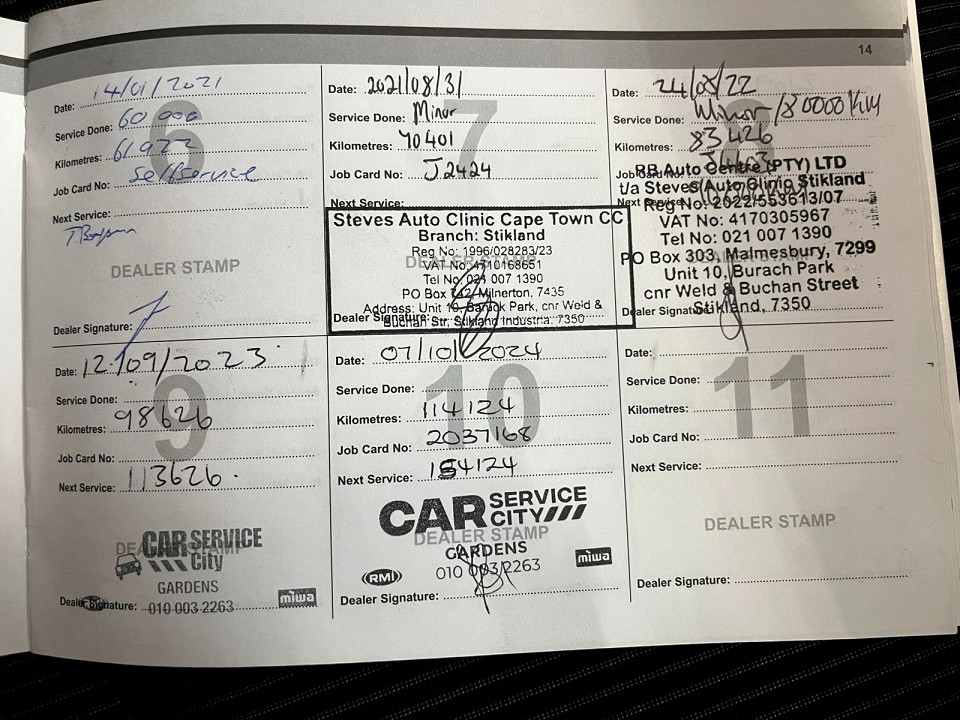 14
6
Date: 14/01/2021
Service Done: 60 000
Kilometres: 61922
Job Card No: Selfservice
Next Service:
DEALER STAMP
Dealer Signature:
7
Date: 2021/08/31
Service Done: Minor
Kilometres: 70401
Job Card No: J2424
Next Service:
Steves Auto Clinic Cape Town CC
Branch: Stikland
Reg No: 1996/028283/23
VAT No: 4710168651
Tel No: 021 007 1390
PO Box 742, Milnerton, 7435
Address: Unit 10, Barack Park, cnr Weld &
Buchan Str, Stikland Industria. 7350
Dealer Signature:
Date: 24/08/22
Service Done: Minor /80000 KM
Kilometres: 83426
Job Card No:
Next Service:
RB Auto Centre (PTY) LTD
t/a Steves Auto Clinic Stikland
Reg No: 2022/553613/07
VAT No: 4170305967
Tel No: 021 007 1390
PO Box 303, Malmesbury, 7299
Unit 10, Burach Park
cnr Weld & Buchan Street
Stikland, 7350
Dealer Signature:
9
Date: 12/09/2023
Service Done:
Kilometres: 98626
Job Card No:
Next Service: 113626.
DEALER STAMP
CAR SERVICE
City
GARDENS
Dealer Signature: 010 003 2263
miwa
10
Date: 07/10/2024
Service Done:
Kilometres: 114124
Job Card No: 2037168
Next Service: 154124
CAR SERVICE
CITY
DEALER STAMP
GARDENS
RMI
010 003 2263
miwa
Dealer Signature:
11
Date:
Service Done:
Kilometres:
Job Card No:
Next Service:
DEALER STAMP
Dealer Signature: